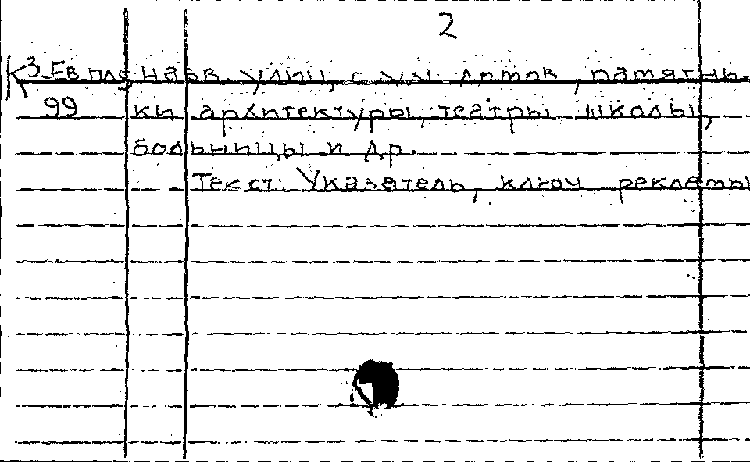 2
К 3-Ев пл., назв. улиц, с ук. домов, памятни-
99 ки архитектуры, театры школы,
больницы и др.
Текст: Указатель, ключ рекламы